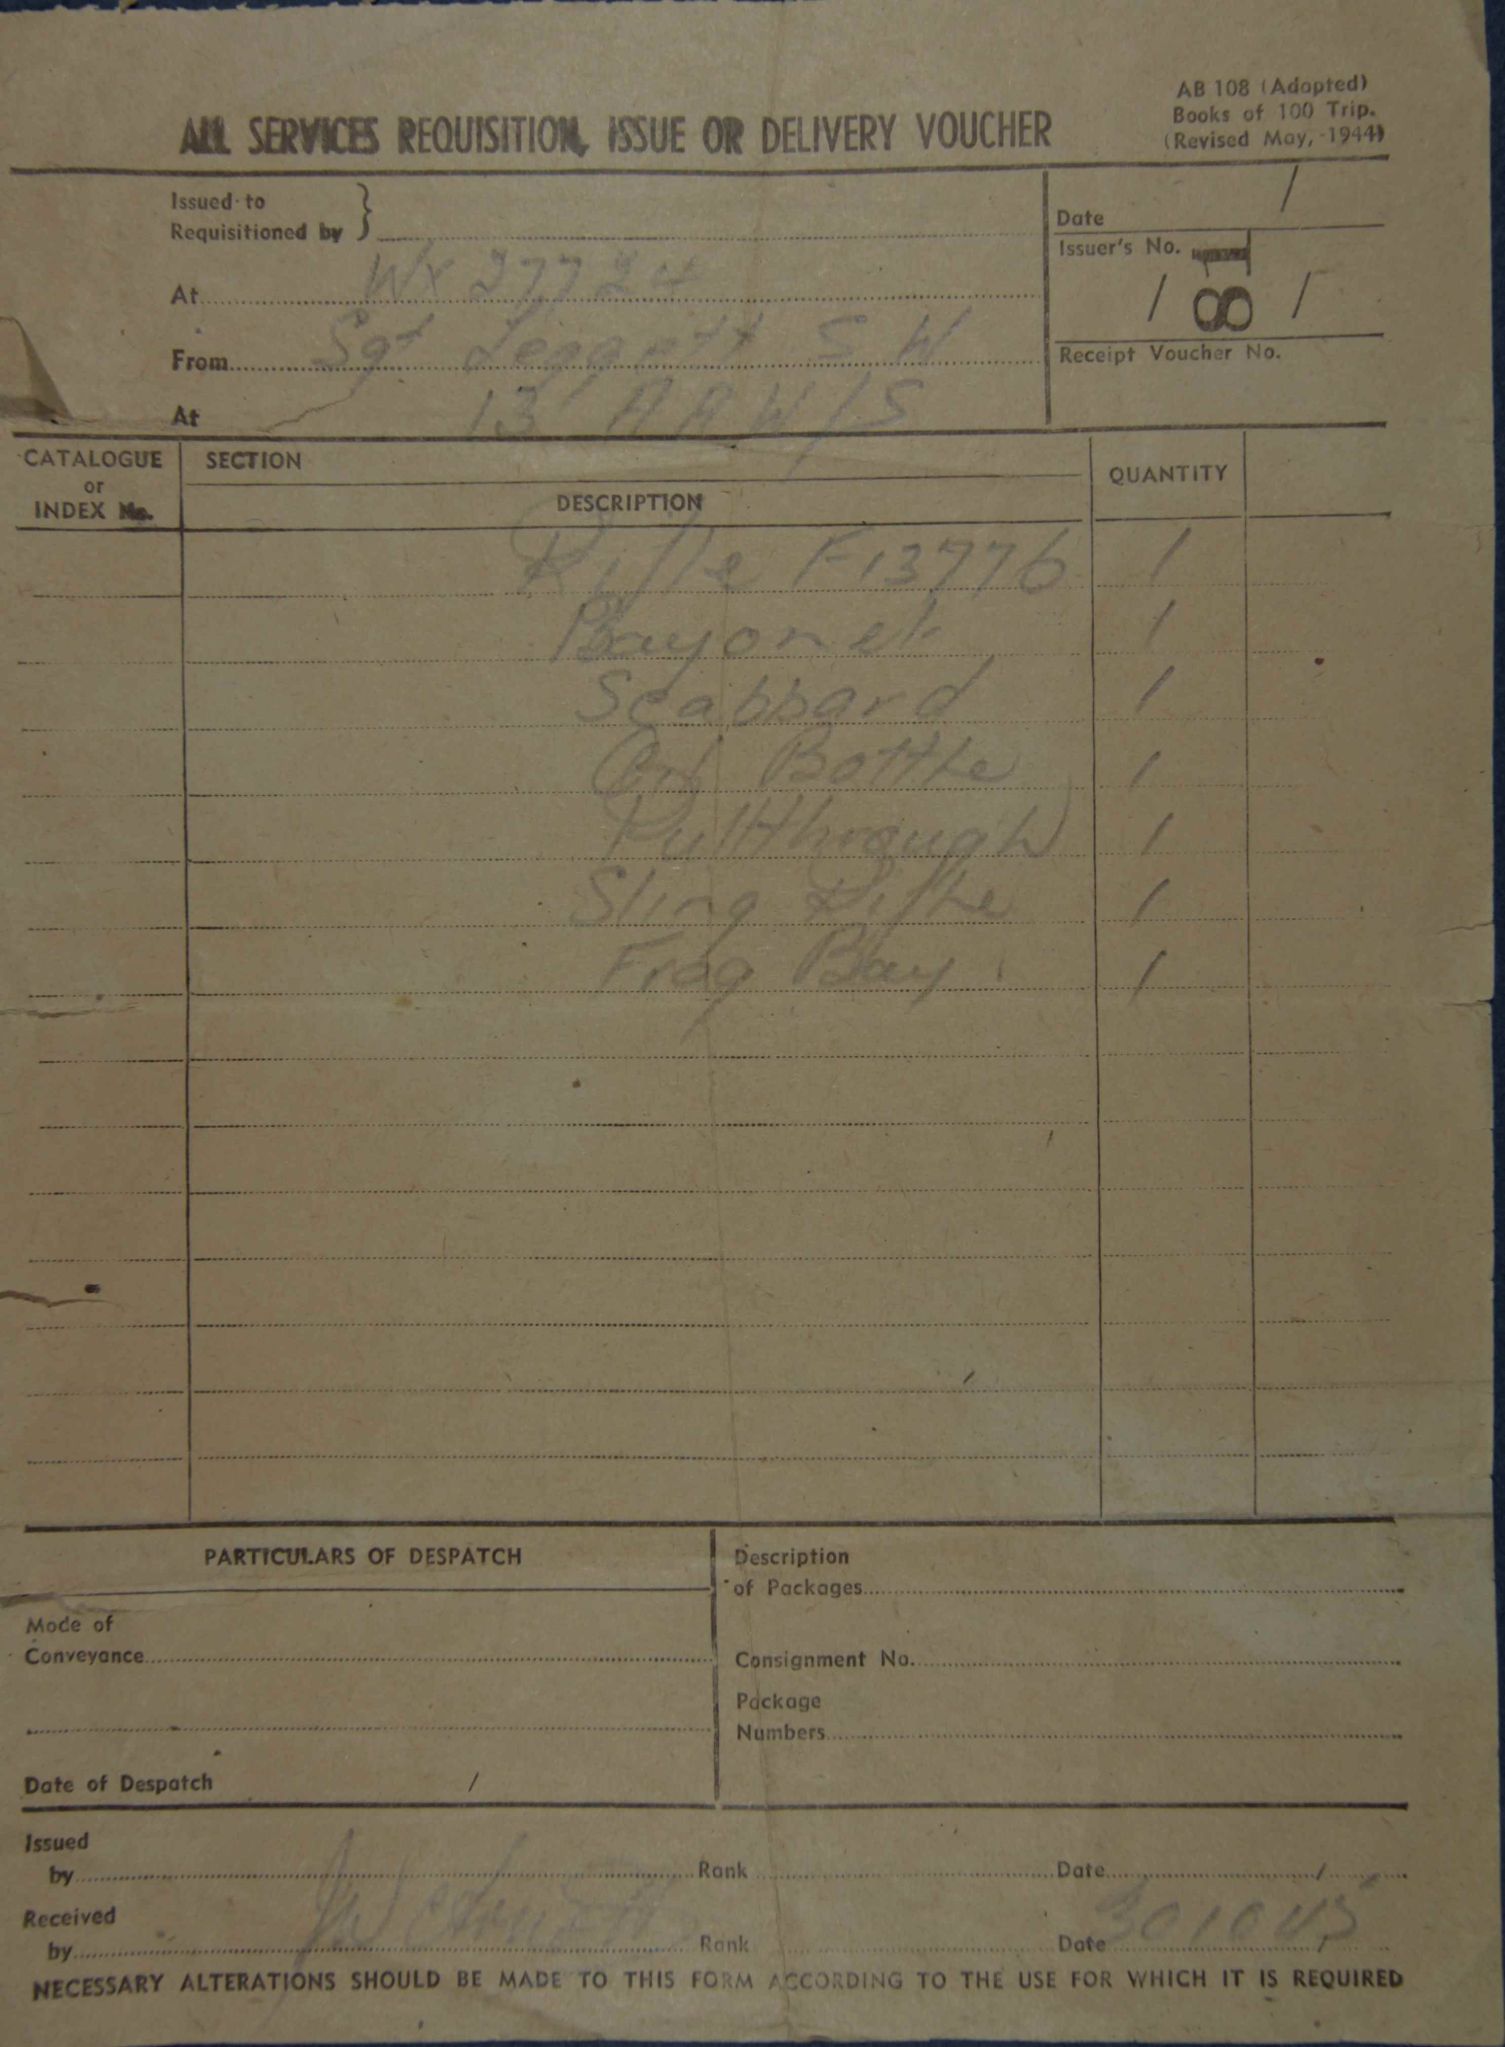 AB 108 (Adapted)
Books of 100 Trip.
(Revised May, 1944)
ALL SERVICES REQUISITION, ISSUE OR DELIVERY VOUCHER
Issued to
Requisitioned by }
Date /
Issuer's No.
/ 81 /
At WX 27724
From Sgt Leggett S W
Receipt Voucher No.
At 13 A A W/S
CATALOGUE or INDEX No.
SECTION
DESCRIPTION
QUANTITY
Rifle F13776 1
Bayonet 1
Scabbard 1
Oil Bottle 1
Pullthrough 1
Sling Rifle 1
Frog Bay. 1
PARTICULARS OF DESPATCH
Description
of Packages
Mode of
Conveyance
Consignment No.
Package
Numbers
Date of Despatch /
Issued
by Rank Date /
Received
by Rank Date 301045
NECESSARY ALTERATIONS SHOULD BE MADE TO THIS FORM ACCORDING TO THE USE FOR WHICH IT IS REQUIRED